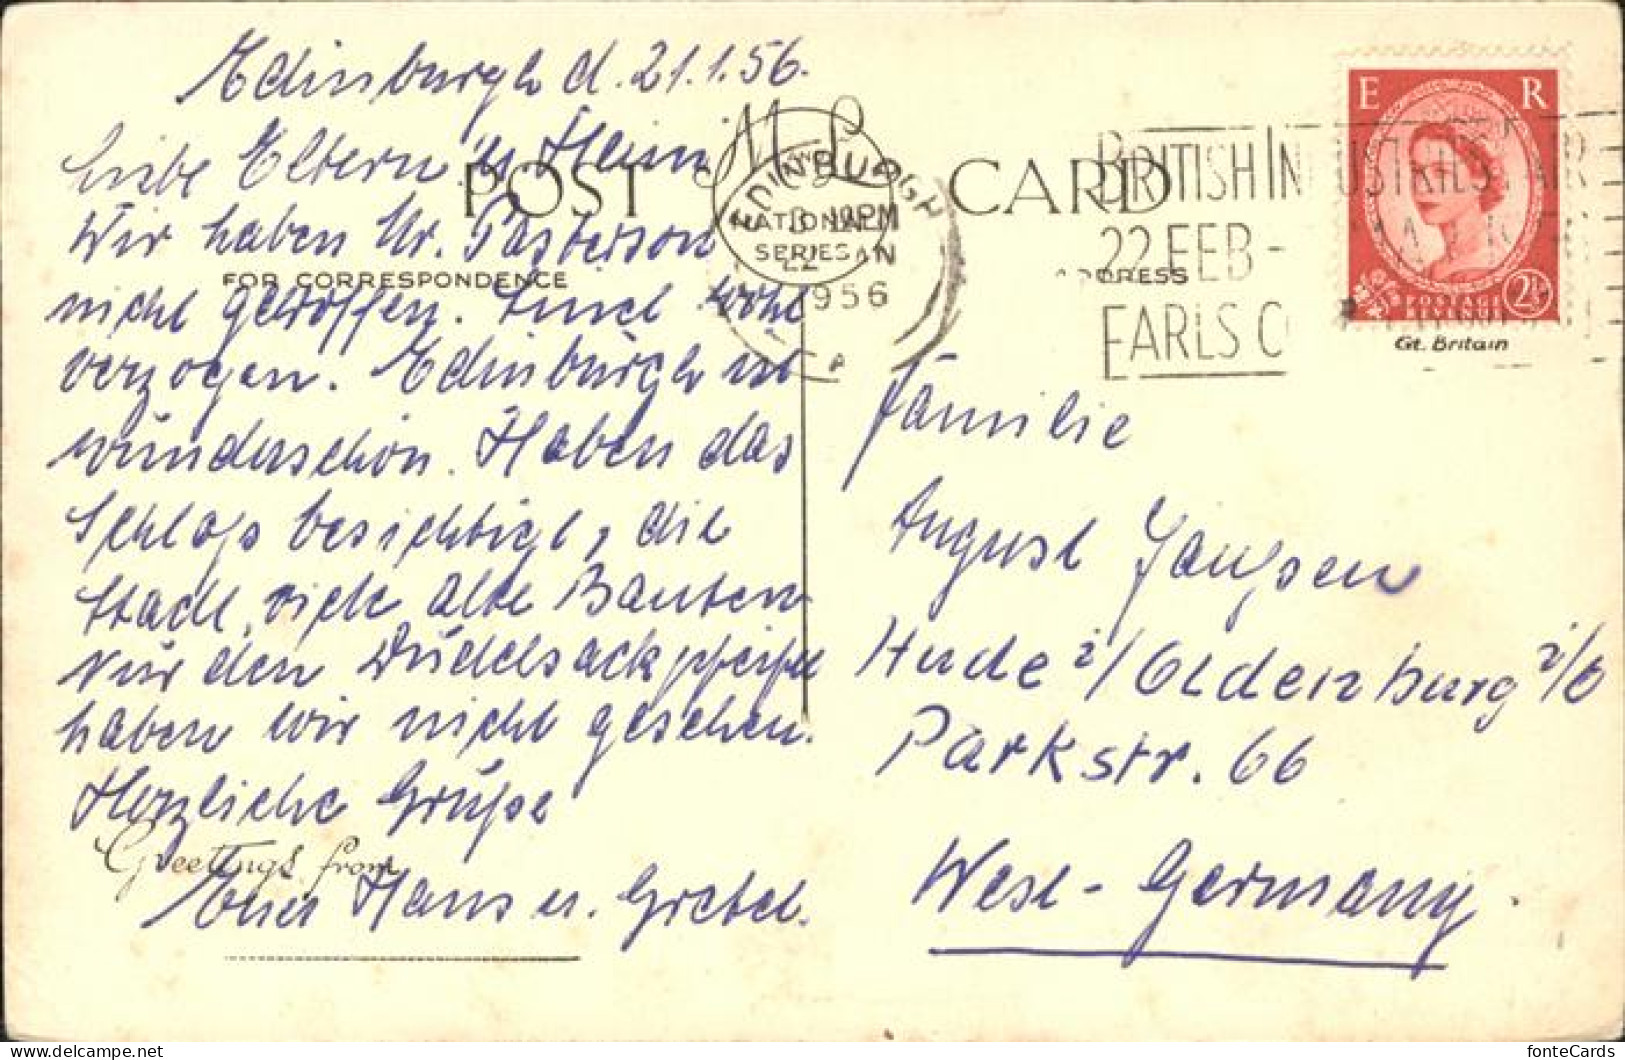 Edinburgh d. 21.1.56.
Liebe Eltern u. Heini
Wir haben Mr. Pasterson
nicht getroffen. Sind wohl
verzogen. Edinburgh ist
wunderschön. Haben das
Schloß besichtigt, die
Stadt, viele alte Bauten
Nur den Dudelsackpfeifer
haben wir nicht gesehen.
Herzliche Grüße
Eure Hans u. Gretel.
POST CARD
FOR CORRESPONDENCE
ADDRESS
NATIONAL
SERIES
Greetings from
EDINBURGH
1956
BRITISH INDUSTRIES FAIR
22 FEB -
EARLS C
E R
POSTAGE
REVENUE
2½
Gt. Britain
Familie
August Janßen
Hude i/Oldenburg i/O
Parkstr. 66
West-Germany
fonteCards